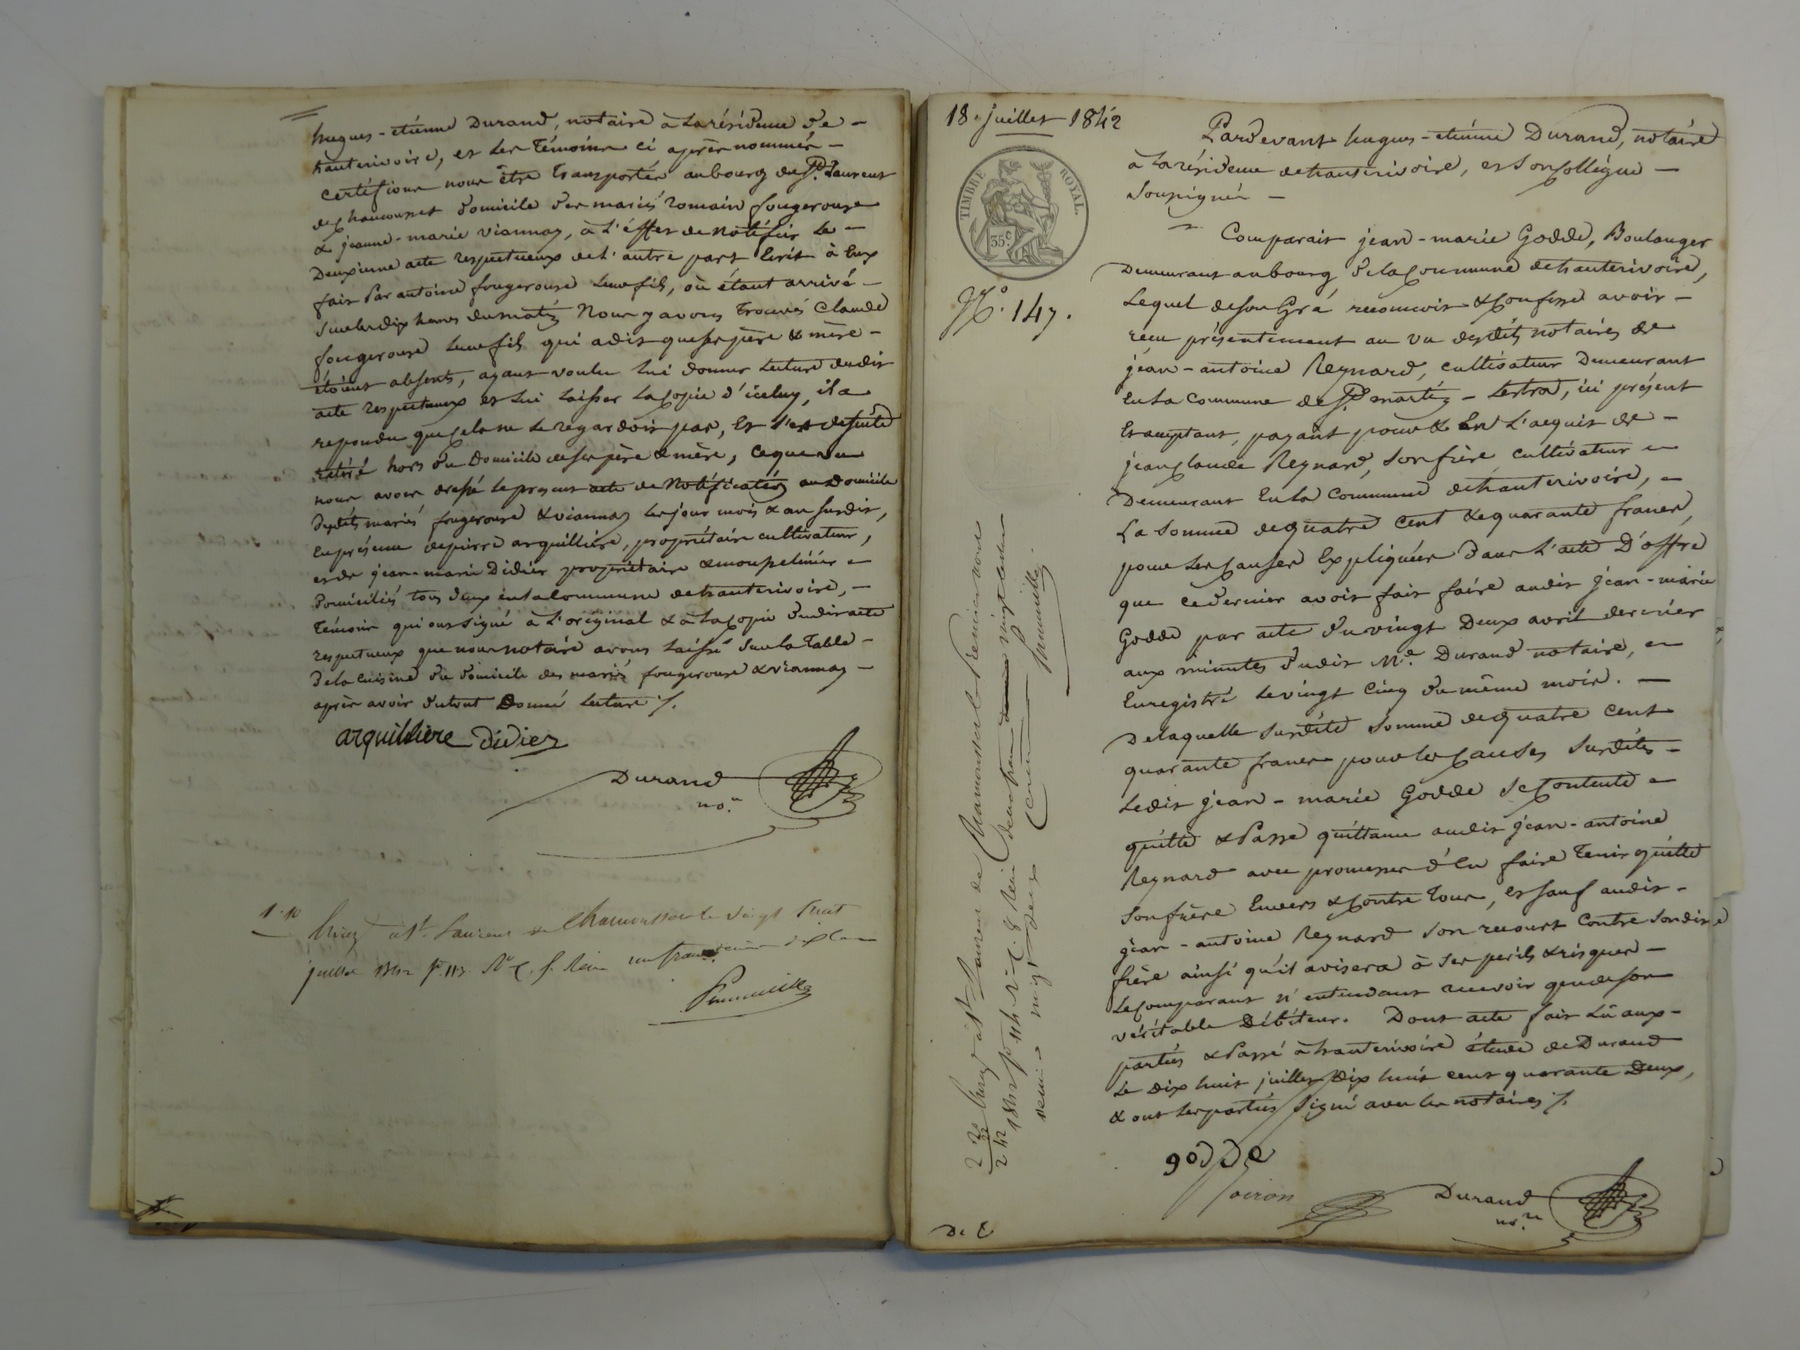 hugues-etienne Durand, notaire à la résidence de -
hauterivoire, et les Témoins ci après nommés -
certifions nous être transportés au bourg de St. Laurent
de chamousset domicile des mariés romain fougerouse
& jeanne-marie viannay, à l'effet de notifier le -
Deuxième acte respectueux de l'autre part Ecrit à Eux
fait Par antoine fougerouse leur fils, où étant arrivé -
Sur les dix heures du matin Nous y avons Trouvés Claude
fougerouse leur fils qui a dit que ses père & mère -
étoient absents, ayant voulu lui donner lecture du dit
acte respectueux et lui laisser la copie d'iceluy, il a
repondu que cela ne le regardoit pas, Et s'est de suite
retiré hors du Domicile de ses père & mère, ce que vu
nous avons dressé le présent acte de Notification au Domicile
desdits mariés fougerouse & viannay les jour mois & an susdit,
En présence de pierre arquilliere, propriétaire cultivateur,
et de jean-marie Didier propriétaire &
Domiciliés tous deux en la commune de hauterivoire, -
Témoins qui ont signé à l'original & à la copie du dit acte
respectueux que nous notaire avons laissé Sur la Table -
De la cuisine du domicile des mariés fougerouse & viannay -
après avoir du tout Donné lecture /.
arquilliere Didier
Durand
no.re
1.10 Enreg. à St. Laurent de Chamousset le vingt huit
juillet 1842 f. 113 Ro C. f. Reçu un franc dix Cen
18 juillet 1842
TIMBRE ROYAL.
35c
No. 147.
Pardevant hugues-etienne Durand, notaire
à la résidence de hauterivoire, et Son Collègue -
Soussignés -
Comparait jean-marie Godde, Boulanger
Demeurant au bourg de la Commune de hauterivoire,
Lequel de Son Gré reconnoit & Confesse avoir -
reçu présentement au vu desdits notaires de
jean-antoine Reynard, cultivateur Demeurant
En la Commune de St. martin-Lestra, ici présent
Et acceptant, payant pour & En L'acquit de -
jean Claude Reynard, Son frère cultivateur
Demeurant En la Commune de hauterivoire,
La Somme de quatre cent & quarante francs,
pour les Causes Expliquées Dans L'acte D'offre
que ce dernier avoit fait faire audit jean-marie
Godde par acte du vingt Deux avril dernier
aux minutes dudit Me. Durand notaire,
Enregistré le vingt Cinq du même mois. -
De laquelle Susdite Somme de quatre cent
quarante francs pour les Causes Susdites -
Ledit jean-marie Godde Se Contente
quitte & Passe quittance audit jean-antoine
Reynard avec promesse d'En faire Tenir quitte
Son frère Envers & Contre Tous, et Sauf audit -
jean-antoine Reynard Son recourt Contre Son dit
frère ainsi qu'il avisera à Ses perils & risques -
Le Comparant n'entendant recevoir que de Son
véritable Débiteur. Dont acte fait Lu aux -
parties & Passé à hauterivoire étude de Durand
Le Dix huit juillet Dix huit cent quarante Deux,
& ont les parties Signé avec les notaires /.
godde
Durand
no.re
2.20
22
2.42
Enreg. à St. Laurent de Chamousset le
1842 fo 114 Ro C. 8 Reçu Deux francs vingt centimes